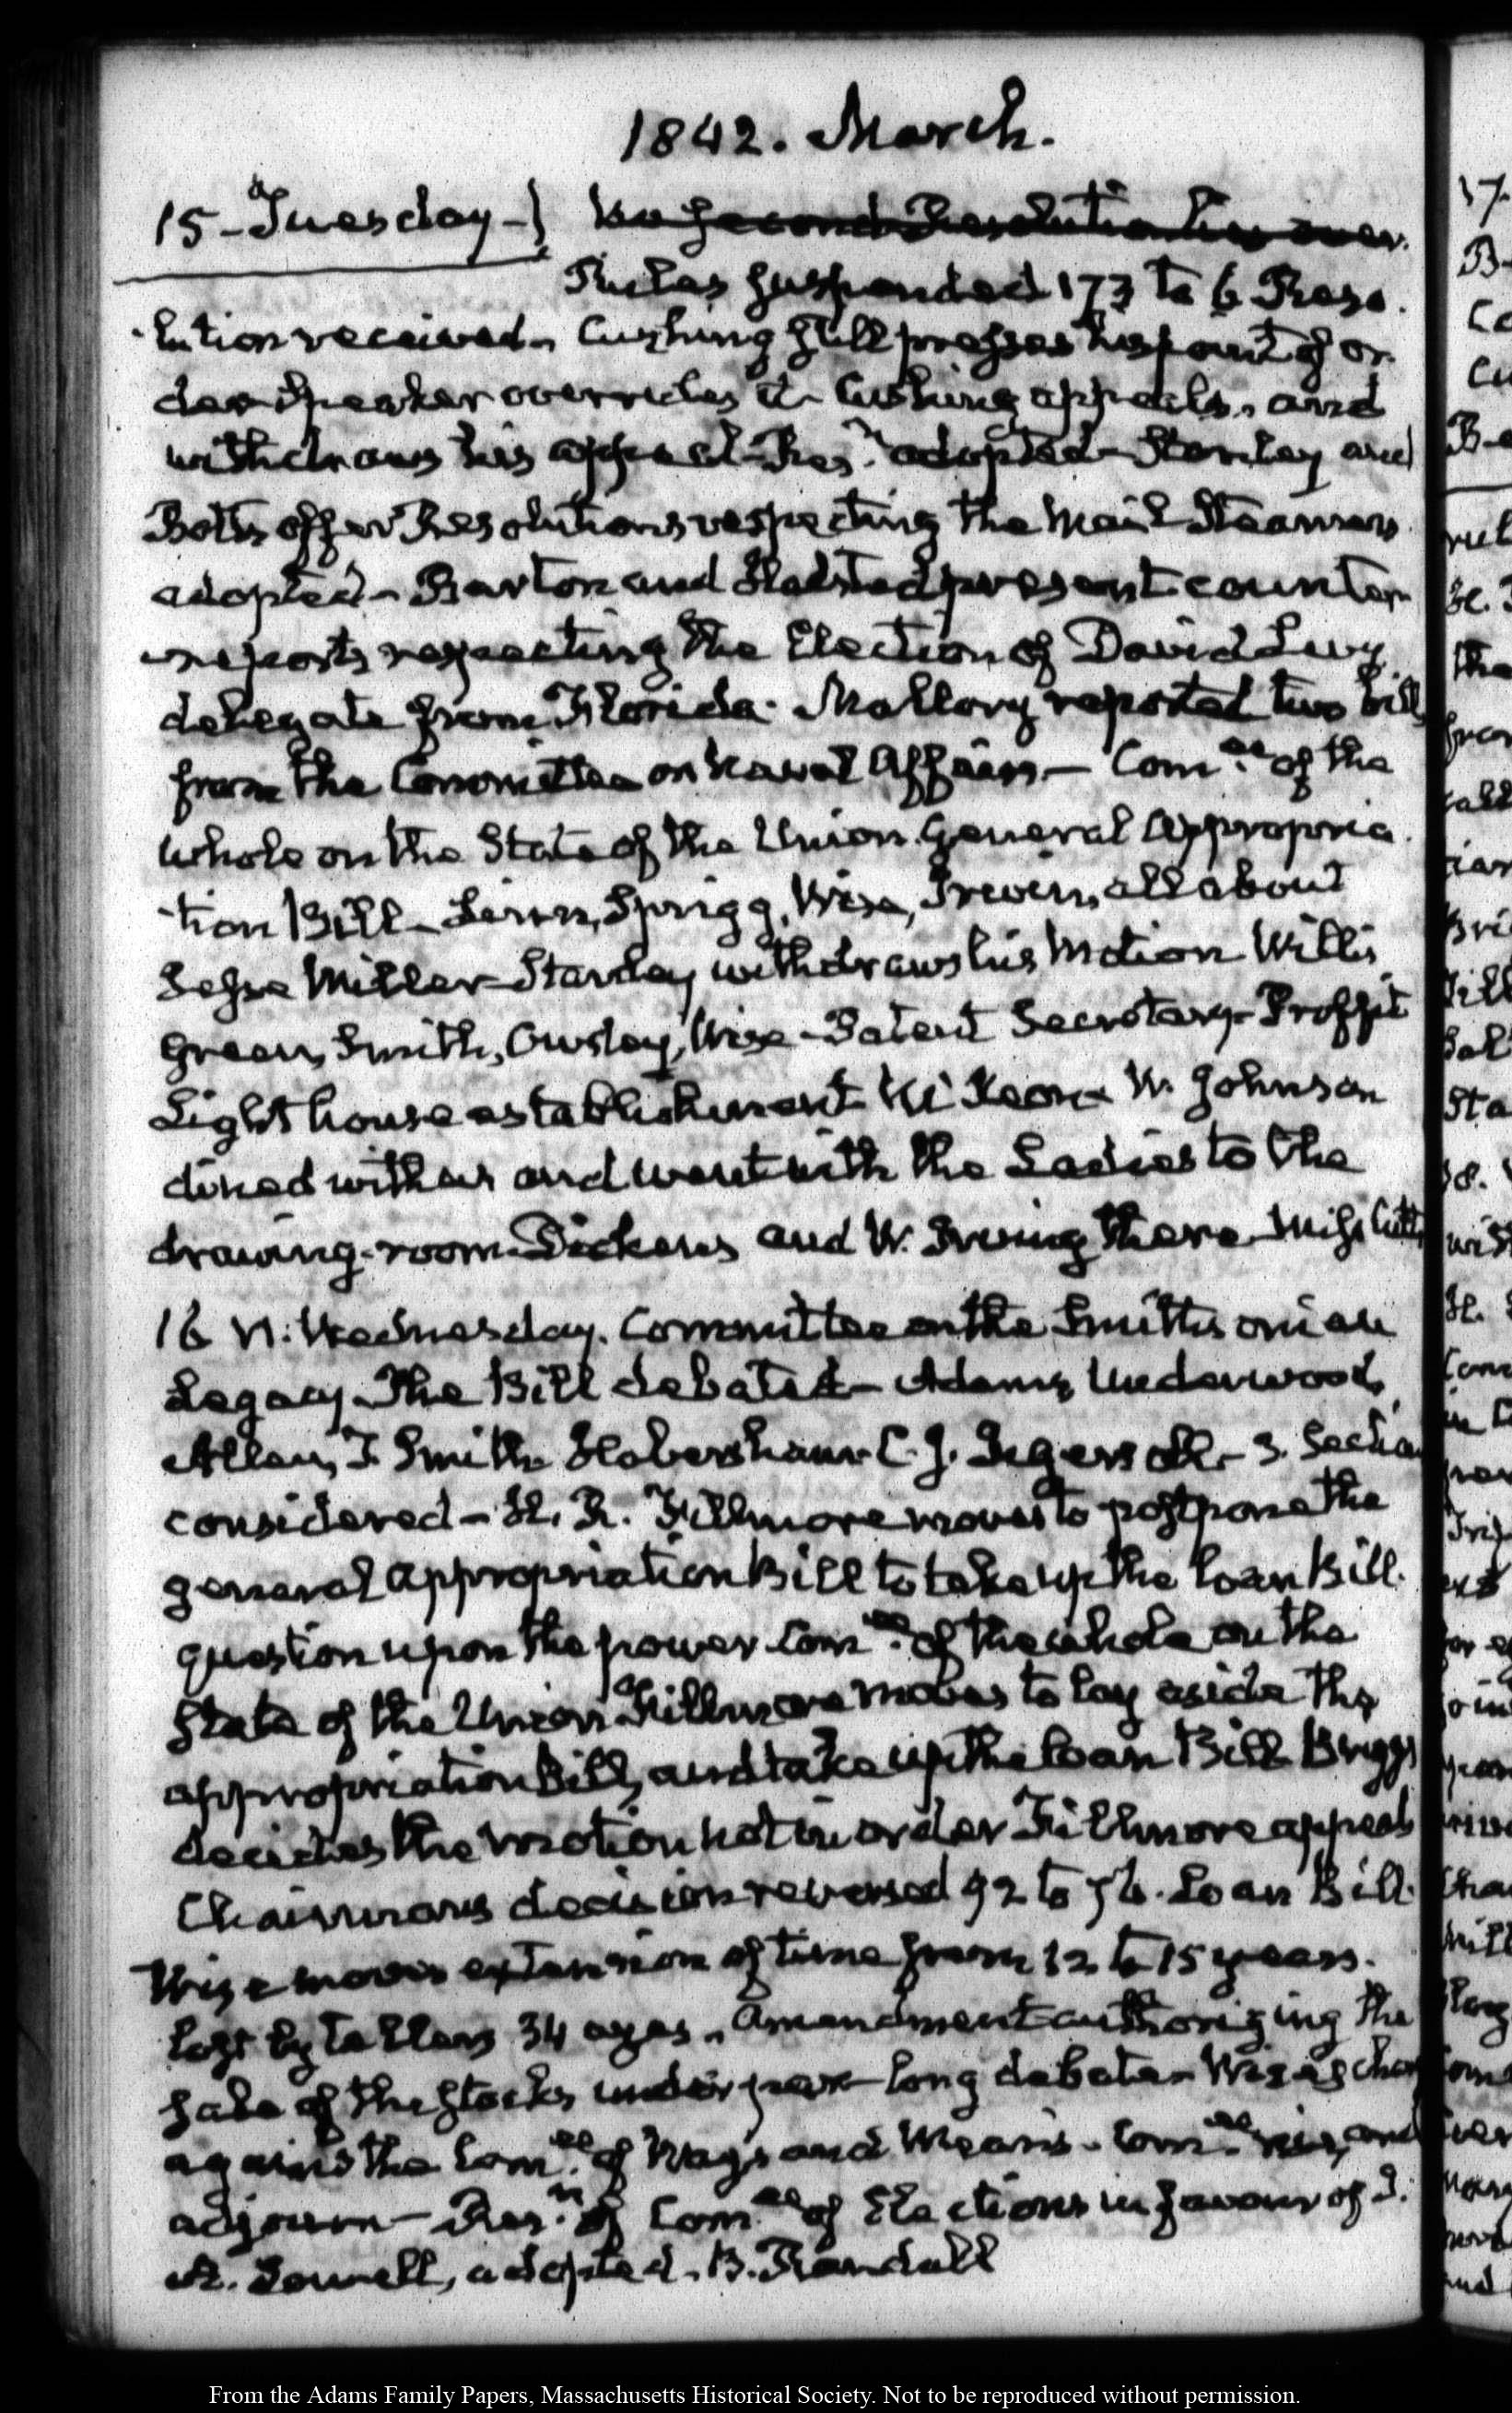 1842. March.
15-Tuesday-} Second Resolution
Rules suspended 173 to 6 Reso.
-lution received. Cushing still presses his point of or-
der Speaker overrules it. Cushing appeals, and
withdraws his appeal-Res.n adopted-Stanley and
Botts offer Resolutions respecting the Mail Steamers
adopted- Barton and Halsted present counter
-reports respecting the Election of David Levy
delegate from Florida. Mallory reported two bills
from the Committee on Naval Affairs- Com.ee of the
whole on the State of the Union. General Appropria
-tion Bill- Linn, Sprigg, Wise, Irwin, all about
Jesse Miller Stanley withdraws his Motion Willis
Green, Smith, Owsley, Wise-Patent Secretary-Proffit
Lighthouse establishment McKeon. W. Johnson
dined with us and went with the Ladies to the
drawing-room. Dickens and W. Irving there. Miss Cutts
16 VI. Wednesday. Committee on the Smithsonian
Legacy. The Bill debated- Adams, Underwood,
Allen, T. Smith Habersham. C. J. Ingersoll- 3. Section
considered- H. R. Fillmore moves to postpone the
general appropriation Bill to take up the Loan Bill.
question upon the power Com.ee of the whole on the
State of the Union Fillmore moves to lay aside the
appropriation Bill, and take up the loan Bill Briggs
decides the motion not in order Fillmore appeals
Chairman's decision reversed 92 to 76. Loan Bill.
Wise moves extension of time from 12 to 15 years.
lost by tellers 34 ayes. Amendment authorizing the
sale of the Stocks under par- long debate. Wise's
against the Com.ee of Ways and Means. Com.ee rise, and
adjourn- Res.n of Com.ee of Elections in favour of J.
A. Lowell, adopted. B. Randall
From the Adams Family Papers, Massachusetts Historical Society. Not to be reproduced without permission.